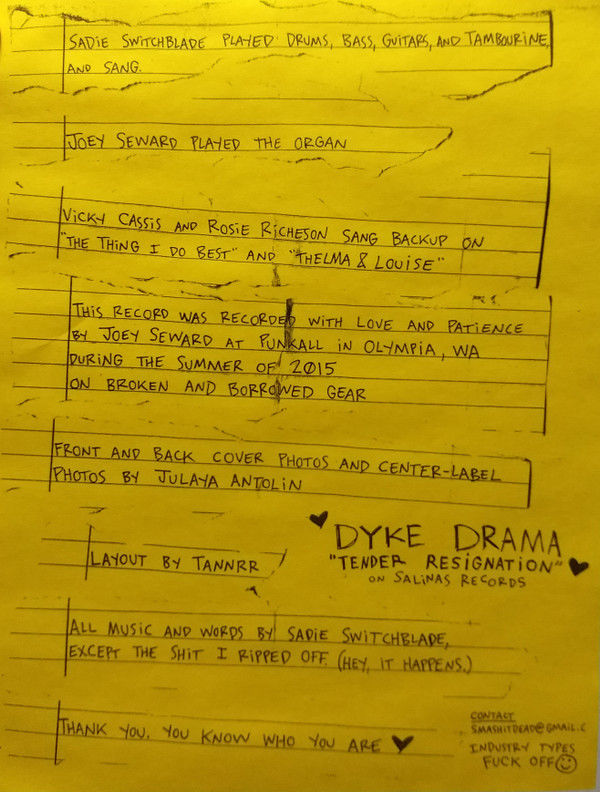 SADIE SWITCHBLADE PLAYED DRUMS, BASS, GUITARS, AND TAMBOURINE,
AND SANG.
JOEY SEWARD PLAYED THE ORGAN
VICKY CASSIS AND ROSIE RICHESON SANG BACKUP ON
"THE THING I DO BEST" AND "THELMA & LOUISE"
THIS RECORD WAS RECORDED WITH LOVE AND PATIENCE
BY JOEY SEWARD AT PUNKALL IN OLYMPIA, WA
DURING THE SUMMER OF 2015
ON BROKEN AND BORROWED GEAR
FRONT AND BACK COVER PHOTOS AND CENTER-LABEL
PHOTOS BY JULAYA ANTOLIN
LAYOUT BY TANNRR
DYKE DRAMA
"TENDER RESIGNATION"
ON SALINAS RECORDS
ALL MUSIC AND WORDS BY SADIE SWITCHBLADE,
EXCEPT THE SHIT I RIPPED OFF. (HEY, IT HAPPENS.)
THANK YOU. YOU KNOW WHO YOU ARE
CONTACT
SMASHITDEAD@GMAIL.C
INDUSTRY TYPES
FUCK OFF